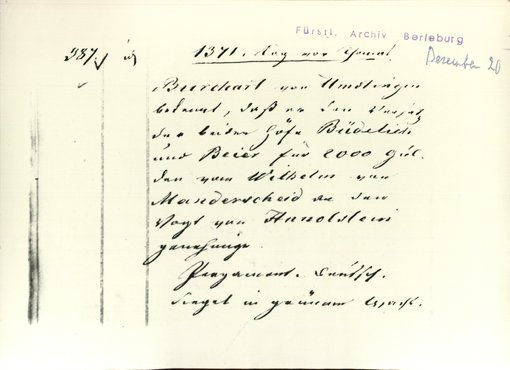 Fürstl. Archiv Berleburg
Dezember 20
387.
1371. Tag vor Thomas.
Burchart von Umstingen
bekennt, daß er den Versatz
der beiden Höfe Büdelich
und Beier für 2000 Gul-
den vom Wilhelm von
Manderscheid an den
Vogt von Hunolstein
genehmige.
Pergament. Deutsch.
Siegel in grünem Wachs.